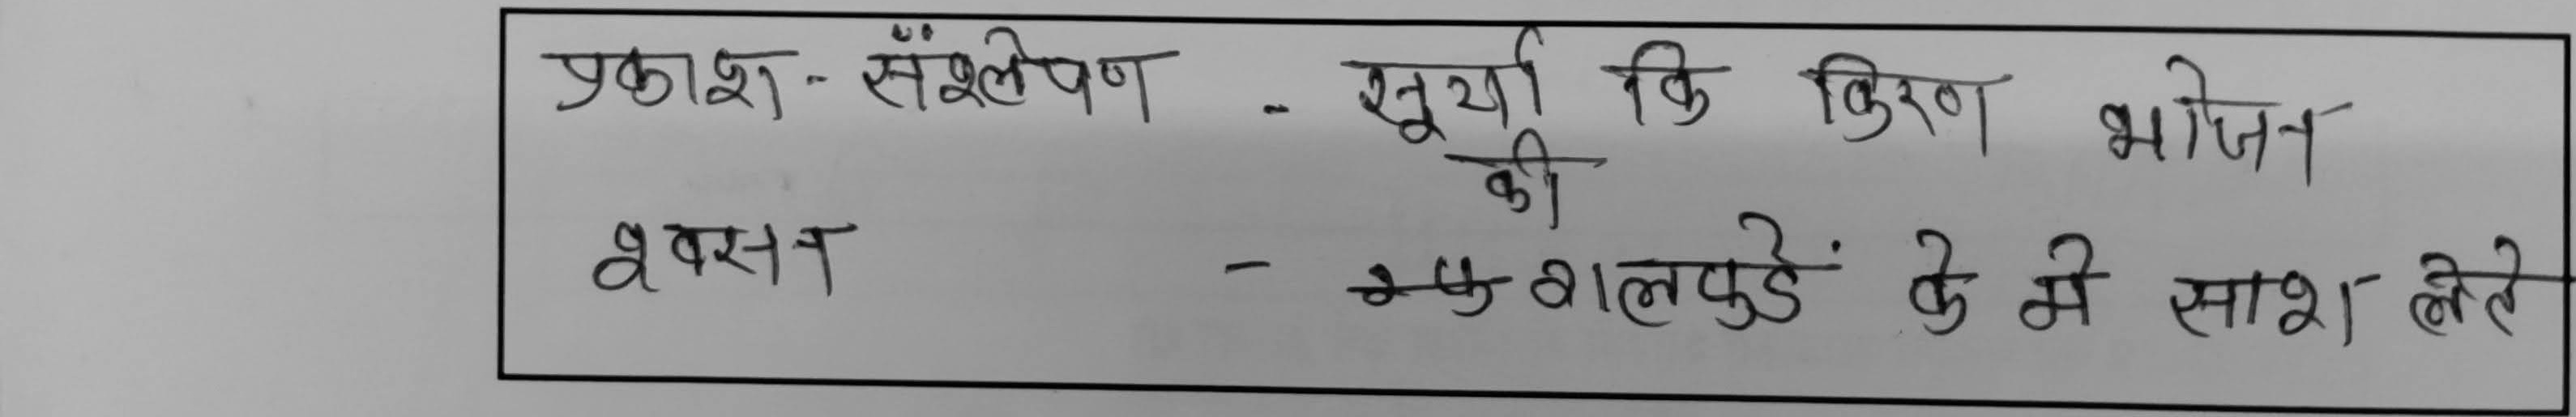 प्रकाश - संश्लेषण - सूर्या कि किरण भोजन
की
श्वसन - गलफुडें के मे साश लेते